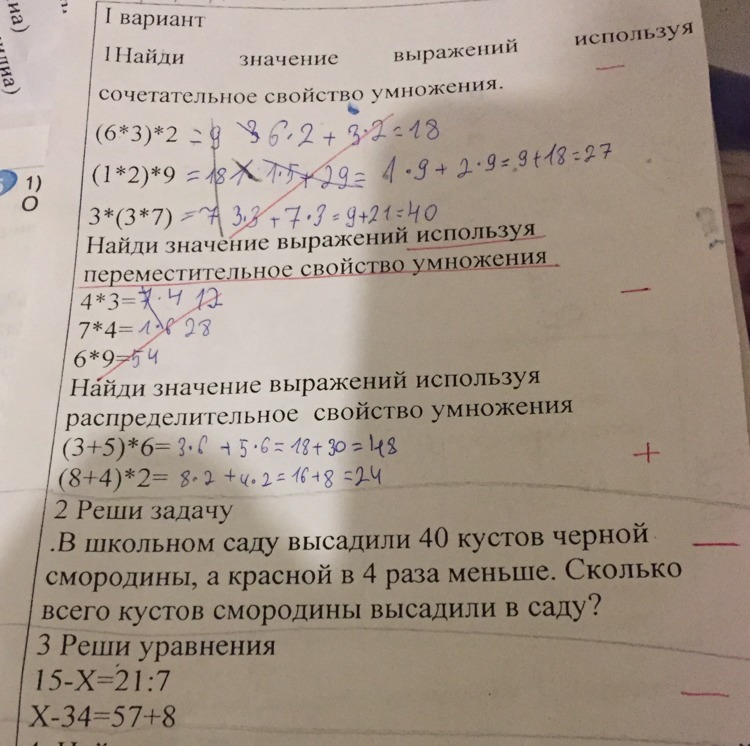 I вариант
1Найди значение выражений используя
сочетательное свойство умножения.
(6*3)*2 = 9 36·2 + 3·2=18
(1*2)*9 =18 1·5+29= 1·9+2·9=9+18=27
3*(3*7) =7 3·3+7·3=9+21=40
Найди значение выражений используя
переместительное свойство умножения
4*3=7·4 12
7*4=1·6 28
6*9=54
Найди значение выражений используя
распределительное свойство умножения
(3+5)*6= 3·6 +5·6=18+30=48
(8+4)*2= 8·2 +4·2=16+8=24
2 Реши задачу
.В школьном саду высадили 40 кустов черной
смородины, а красной в 4 раза меньше. Сколько
всего кустов смородины высадили в саду?
3 Реши уравнения
15-Х=21:7
Х-34=57+8
1)
О